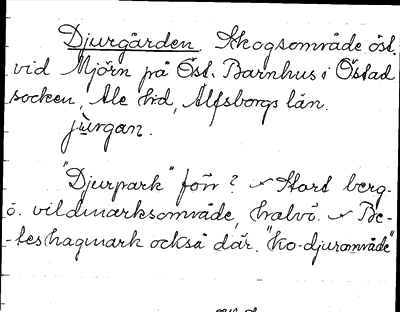 Djurgården. Skogsområde öst.
vid Mjörn på Öst. Barnhus i Östad
socken, Ale hd, Älfsborgs län.
jùrgan.
"Djurpark" förr? Stort berg-
o. vildmarksområde, halvö. Be-
-teshagmark också där. "Ko-djurområde"